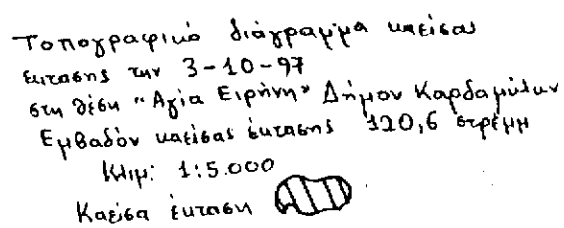 Τοπογραφικό διάγραμμα καείσας
έκτασης την 3-10-97
στη θέση "Αγία Ειρήνη" Δήμου Καρδαμύλων
Εμβαδόν καείσας έκτασης 120,6 στρέμμ
Κλιμ: 1:5.000
Καείσα έκταση